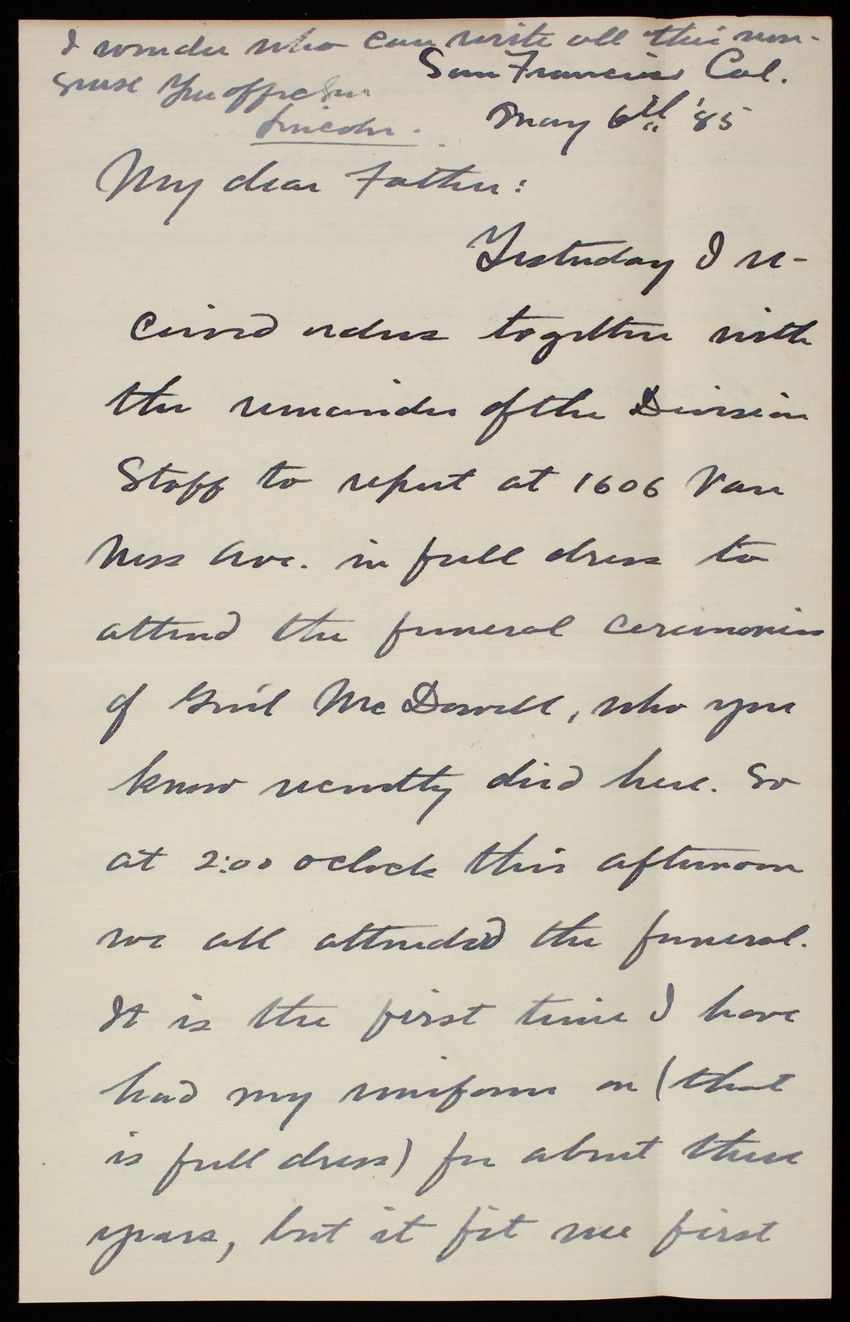 I wonder who can write all this non-
sense Your aff. son
Lincoln.
San Francisco Cal.
May 6th '85
My dear Father:
Yesterday I re-
ceived orders together with
the remainder of the Division
Staff to report at 1606 Van
Ness Ave. in full dress to
attend the funeral ceremonies
of Gen'l McDowell, who you
know recently died here. So
at 2:00 oclock this afternoon
we all attended the funeral.
It is the first time I have
had my uniform on (that
is full dress) for about three
years, but it fit me first